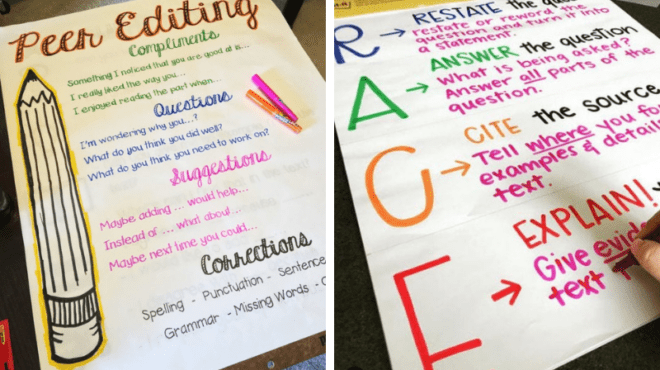 Peer Editing
Compliments
Something I noticed that you are good at is...
I really liked the way you...
I enjoyed reading the part when...
Questions
I'm wondering why you...?
What do you think you did well?
What do you think you need to work on?
Suggestions
Maybe adding ... would help...
Instead of ... what about...
Maybe next time you could...
Corrections
Spelling - Punctuation - Sentence
Grammar - Missing Words -
R → RESTATE the
restate or reword the
question and turn it into
a statement.
A → ANSWER the question
What is being asked?
Answer all parts of the
question.
C → CITE the source
Tell where you
examples &
text.
E → EXPLAIN!
Give
text